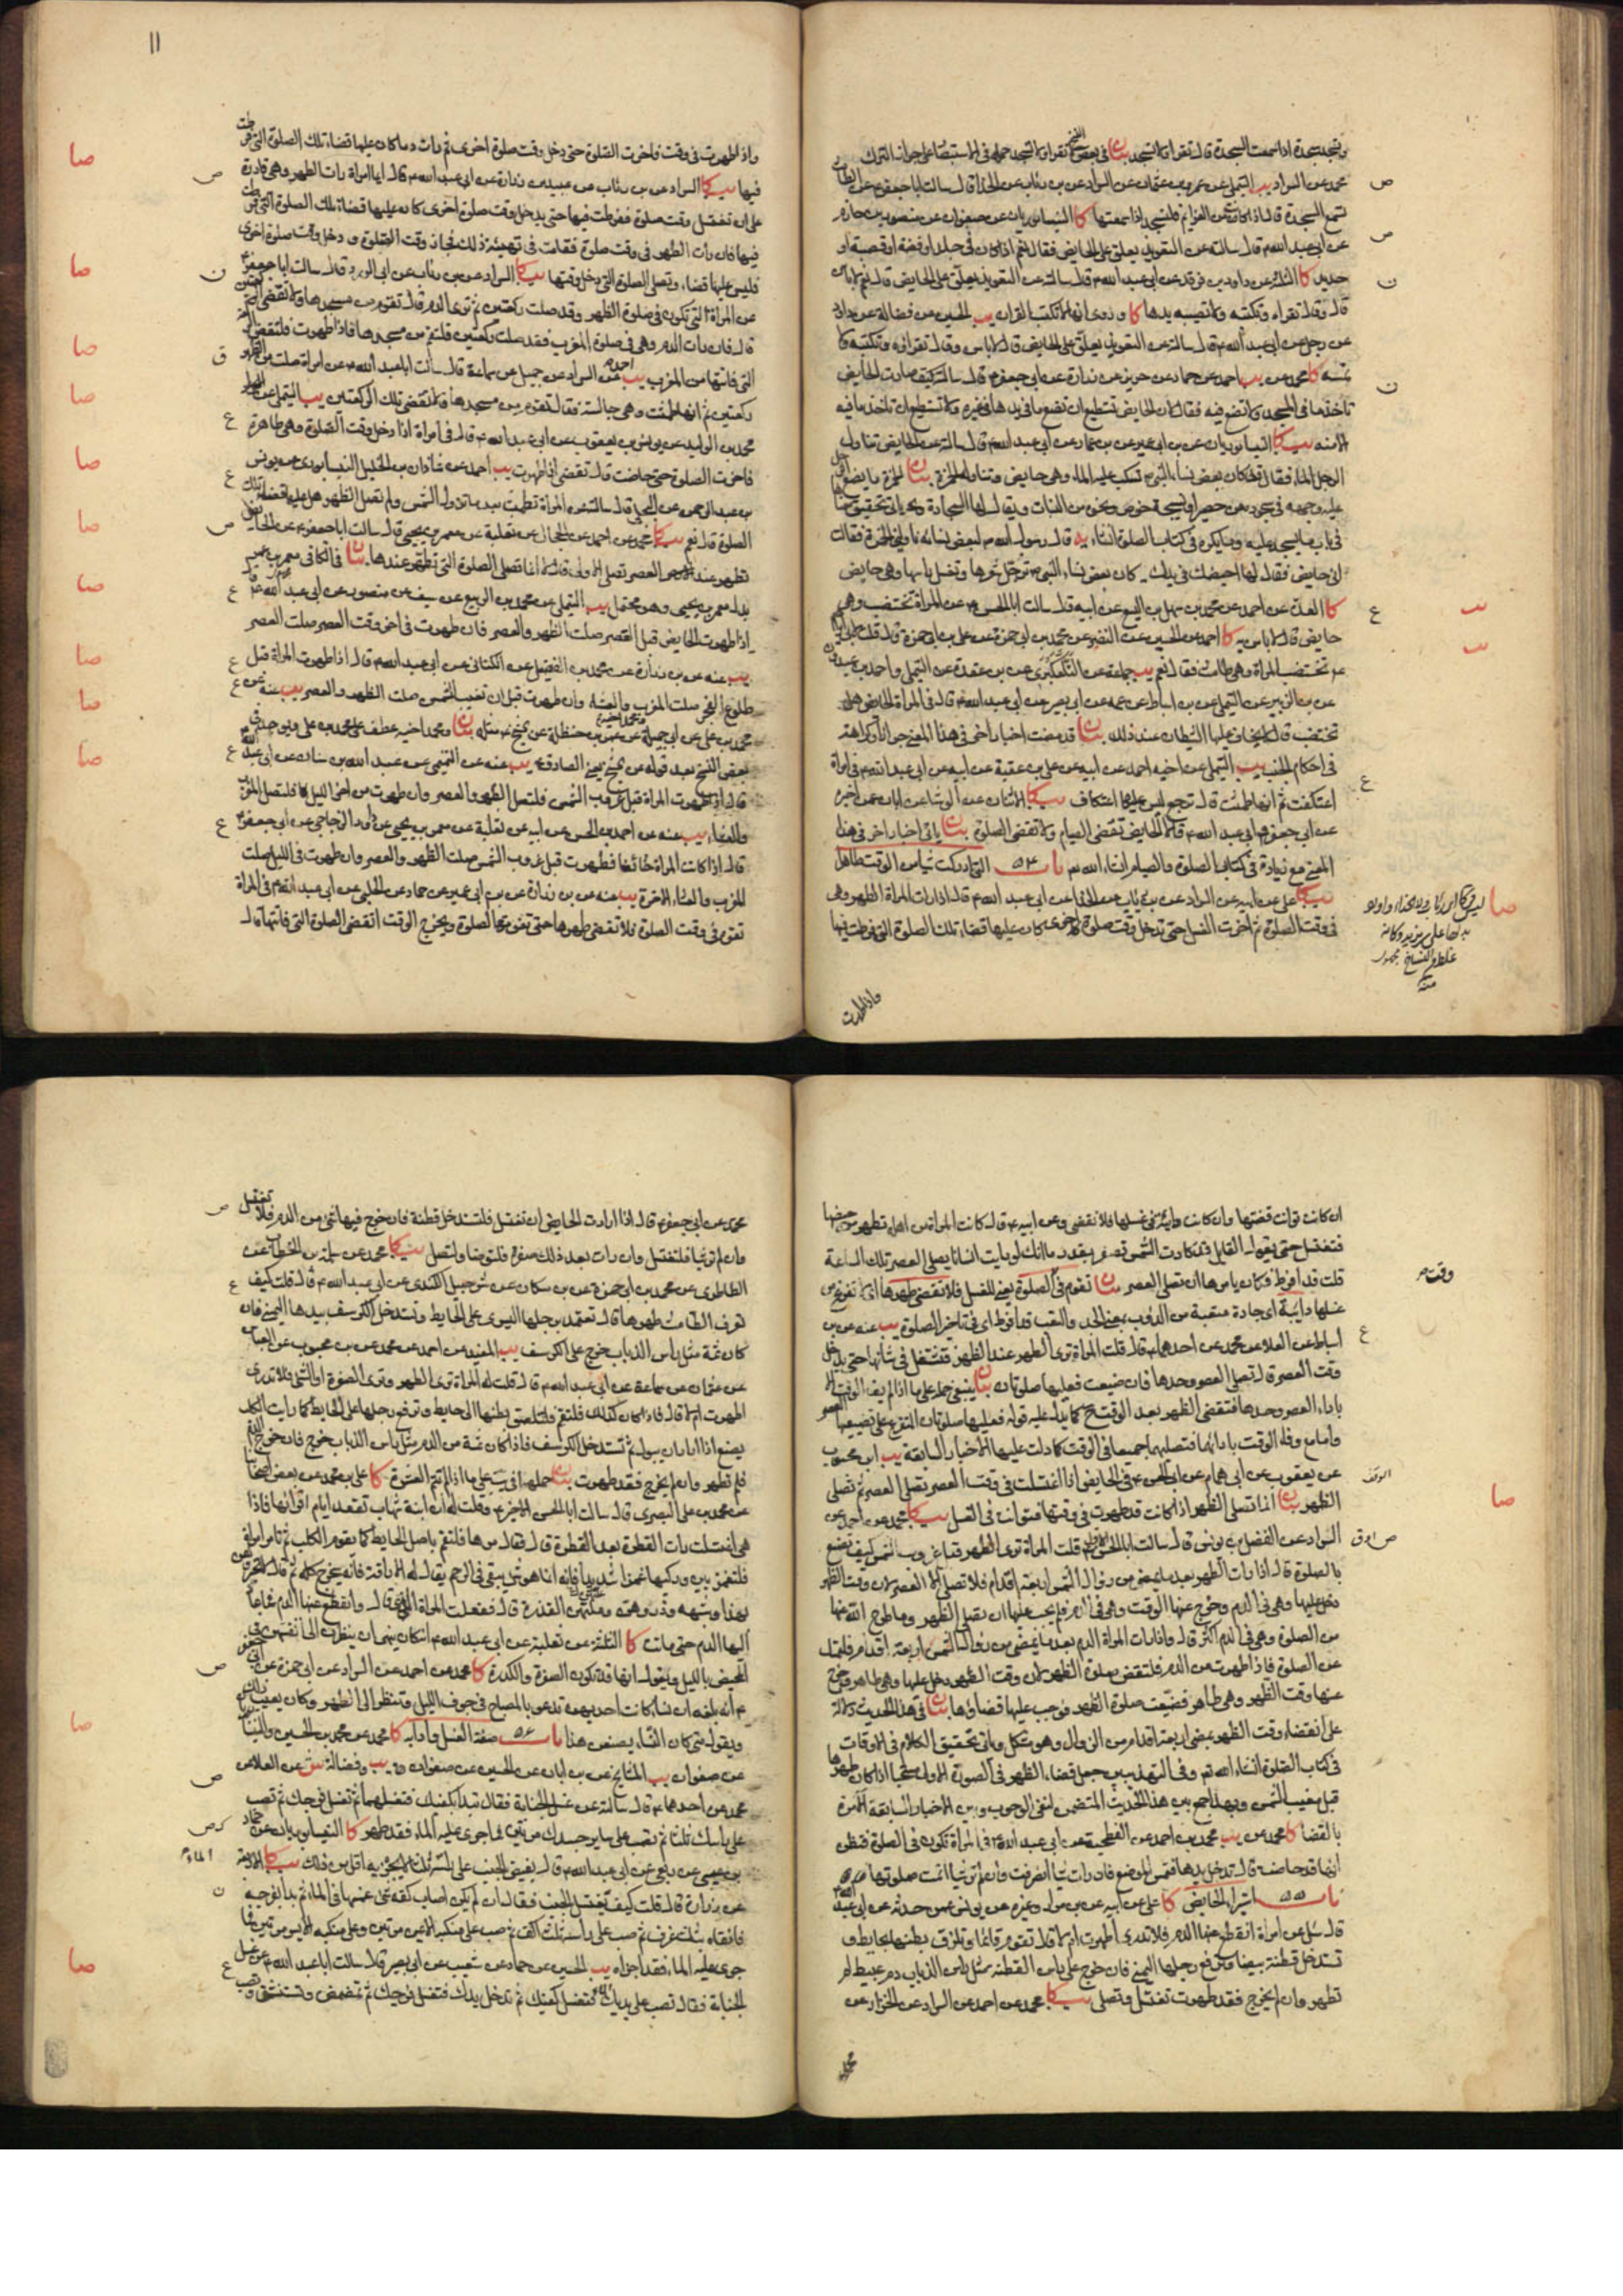 وتسجد سجدة اذا سمعت السجدة قال تقرا ولا تسجد بيان في بعض النسخ تقرا ولا تسجد حمله في الاستبصار على جواز الترك
محمد عن السراد يب التيملي عن عمرو بن عثمان عن السراد عن بن رئاب عن الحذاء قال سالت ابا جعفر ع عن الطامث
تسمع السجدة قال اذا كانت من العزايم فلتسجد اذا سمعتها كا النيسابوريان عن صفوان عن منصور بن حازم
عن ابي عبد الله ع قال سالته عن التعويذ يعلق على الحايض فقال نعم اذا كان في جلد او فضة او قصبة او
حديد كا الثلثة عن داود بن فرقد عن ابي عبد الله ع قال سالته عن التعويذ يعلق على الحايض قال نعم لا باس
قال وقال تقراه وتكتبه ولا تصيبه يدها كا وروى انها لا تكتب القران يب الحسين عن فضالة عن داود
عن رجل عن ابي عبد الله ع قال سالته عن التعويذ يعلق على الحايض قال لا باس وقال تقراه وتكتبه ولا
تمسه كا محمد عن يب احمد عن حماد عن حريز عن زرارة عن ابي جعفر ع قال سالته كيف صارت الحايض
تاخذ ما في المسجد ولا تضع فيه فقال لان الحايض تستطيع ان تضع ما في يدها في غيره ولا تستطيع ان تاخذ ما فيه
الا منه يب كا النيسابوريان عن بن ابي عمير عن بن عمار عن ابي عبد الله ع قال سالته عن الحايض تناول
الرجل الماء فقال قد كان بعض نساء النبي ص تسكب عليه الماء وهي حايض وتناوله الخمرة بيان الخمرة ما يضع الرجل
عليه وجهه في سجوده من حصير او نسيجة خوص ونحوه من النبات ويقال لها السجادة وياتي تحقيق
في باب ما يسجد عليه وما يكره في كتاب الصلوة انشاء الله قال رسول الله ص لبعض نسائه ناوليني الخمرة فقالت
اني حايض فقال لها احيضك في يدك كان بعض نساء النبي ص ترجل شعرها وتغسل راسها وهي حايض
كا العدة عن احمد عن محمد بن سهل بن اليسع عن ابيه قال سالت ابا الحسن ع عن المراة تختضب وهي
حايض قال لا باس به كا احمد عن الحسين عن النضر عن محمد بن ابي حمزة عن علي بن ابي حمزة قال قلت لابي ابراهيم
ع تختضب المراة وهي طامث فقال نعم يب جماعة عن التلعكبري عن بن عقدة عن التيملي واحمد بن عبدون
عن بن الزبير عن التيملي عن بن اسباط عن عمه عن ابي بصير عن ابي عبد الله ع قال في المراة الحايض هل
تختضب قال لا يخاف عليها الشيطان عند ذلك بيان قد مضت اخبار اخر في هذا المعنى جوازا وكراهة
في احكام الجنب يب التيملي عن اخيه احمد عن ابيه عن علي بن عقبة عن ابيه عن ابي عبد الله ع في امراة
اعتكفت ثم انها طمثت قال ترجع ليس عليها اعتكاف يب كا الاثنان عن الوشا عن ابان عمن اخبره
عن ابي جعفر وابي عبد الله ع قالا الحايض تقضي الصيام ولا تقضي الصلوة بيان ياتي اخبار اخر في هذا
المعنى مع زيادة في كتابي الصلوة والصيام انشاء الله تعالى باب ٥٤ التي ادركت شيا من الوقت طاهرا
يب كا علي عن ابيه عن السراد عن بن رئاب عن الحذاء عن ابي عبد الله ع قال اذا رات المراة الطهر وهي
في وقت الصلوة ثم اخرت الغسل حتى تدخل وقت صلوة اخرى كان عليها قضاء تلك الصلوة التي فرطت فيها
واذا طهرت
١١
واذا طهرت في وقت فاخرت الصلوة حتى دخل وقت صلوة اخرى ثم رات دما كان عليها قضاء تلك الصلوة التي فرطت
فيها يب كا السراد عن بن رئاب عن عبيد بن زرارة عن ابي عبد الله ع قال ايما امراة رات الطهر وهي قادرة
على ان تغتسل وقت صلوة ففرطت فيها حتى يدخل وقت صلوة اخرى كان عليها قضاء تلك الصلوة التي فرطت
فيها فان رات الطهر في وقت صلوة فقامت في تهيئة ذلك فجاز وقت الصلوة ودخل وقت صلوة اخرى
فليس عليها قضاء وتصلي الصلوة التي دخل وقتها يب كا السراد عن بن رئاب عن ابي الورد قال سالت ابا جعفر ع
عن المراة التي تكون في صلوة الظهر وقد صلت ركعتين ثم ترى الدم قال تقوم من مسجدها ولا تقضي الركعتين
قال فان رات الدم وهي في صلوة المغرب فقد صلت ركعتين فلتقم من مسجدها فاذا طهرت فلتقض الركعة
التي فاتتها من المغرب يب احمد عن السراد عن جميل عن سماعة قال سالت ابا عبد الله ع عن امراة صلت من الظهر
ركعتين ثم انها طمثت وهي جالسة فقال تقوم من مسجدها ولا تقضي تلك الركعتين يب التيملي عن
محمد بن الوليد عن يونس بن يعقوب عن ابي عبد الله ع قال في امراة اذا دخل وقت الصلوة وهي طاهرة
فاخرت الصلوة حتى حاضت قال تقضي اذا طهرت يب احمد عن شاذان بن الخليل النيسابوري عن يونس
بن عبد الرحمن عن البجلي قال سالته عن المراة تطمث بعد ما تزول الشمس ولم تصل الظهر هل عليها قضاء تلك
الصلوة قال نعم يب كا محمد عن احمد عن الحجال عن ثعلبة عن معمر بن يحيى قال سالت ابا جعفر ع عن الحايض
تطهر عند العصر تصلي الاولى قال لا انما تصلي الصلوة التي تطهر عندها بيان في الكافي معمر بن عمر
بدل معمر بن يحيى وهو محتمل يب التيملي عن محمد بن الربيع عن سيف عن منصور عن ابي عبد الله ع قال
اذا طهرت الحايض قبل العصر صلت الظهر والعصر فان طهرت في اخر وقت العصر صلت العصر
يب عنه عن بن زرارة عن محمد بن الفضيل عن الكناني عن ابي عبد الله ع قال اذا طهرت المراة قبل
طلوع الفجر صلت المغرب والعشاء وان طهرت قبل ان تغيب الشمس صلت الظهر والعصر يب عنه عن
محمد بن علي عن ابي جميلة عن عمر بن حنظلة عن الشيخ ع مثله بيان ومحمد اخيه عطف على محمد بن علي ويوجد في
بعض النسخ بعد قوله عن الشيخ يعني الصادق ع يب عنه عن التميمي عن عبد الله بن سنان عن ابي عبد الله ع
قال اذا طهرت المراة قبل غروب الشمس فلتصل الظهر والعصر وان طهرت من اخر الليل فلتصل المغرب
والعشاء يب عنه عن احمد بن الحسن عن ابيه عن ثعلبة عن معمر بن يحيى عن داود الزجاجي عن ابي جعفر ع
قال اذا كانت المراة حائضا فطهرت قبل غروب الشمس صلت الظهر والعصر وان طهرت في الليل صلت
المغرب والعشاء الاخرة يب عنه عن بن زرارة عن بن ابي عمير عن حماد عن الحلبي عن ابي عبد الله ع في المراة
تقوم في وقت الصلوة فلا تقضي طهرها حتى تفوتها الصلوة ويخرج الوقت اتقضي الصلوة التي فاتتها قال
ان كانت توانت قضتها وان كانت دائبة في غسلها فلا تقضي وعن ابيه ع قال كانت المراة من اهلي تطهر من حيضها
فتغتسل حتى يقول القايل قد كادت الشمس تصفر بقدر ما انك لو رايت انسانا يصلي العصر تلك الساعة
قلت قد افرط فكان يامرها ان تصلي العصر بيان تقوم في الصلوة يعني للغسل فلا تقضي طهرها اي لا تفرغ من
غسلها دائبة اي جادة متعبة من الدؤب بمعنى الجد والتعب قد افرط اي في تاخير الصلوة يب عنه عن بن
اسباط عن العلا عن محمد عن احدهما ع قال قلت المراة ترى الطهر عند الظهر فتشتغل في شانها حتى يدخل
وقت العصر قال تصلي العصر وحدها فان ضيعت فعليها صلوتان بيان ينبغي حمله على ما اذا لم يف الوقت الا
باداء العصر وحدها فتقضي الظهر بعد الوقت كما يدل عليه قوله فعليها صلوتان المتفرع على تضييعها العصر
واما مع وفاء الوقت بادائهما فتصليهما جميعا في الوقت كما دلت عليها الاخبار السابقة يب ابن محبوب
عن يعقوب عن ابي همام عن ابي الحسن ع في الحايض اذا اغتسلت في وقت العصر تصلي العصر ثم تصلي
الظهر بيان انما تصلي الظهر اذا كانت قد طهرت في وقتها فتوانت في الغسل يب كا محمد عن احمد عن
السراد عن الفضل بن يونس قال سالت ابا الحسن الاول ع قلت المراة ترى الطهر قبل غروب الشمس كيف تصنع
بالصلوة قال اذا رات الطهر بعد ما يمضي من زوال الشمس اربعة اقدام فلا تصلي الا العصر لان وقت الظهر
دخل عليها وهي في الدم وخرج عنها الوقت وهي في الدم فلم يجب عليها ان تصلي الظهر وما طرح الله عنها
من الصلوة وهي في الدم اكثر قال واذا رات المراة الدم بعد ما يمضي من زوال الشمس اربعة اقدام فلتمسك
عن الصلوة فاذا طهرت من الدم فلتقض صلوة الظهر لان وقت الظهر دخل عليها وهي طاهر وخرج
عنها وقت الظهر وهي طاهر فضيعت صلوة الظهر فوجب عليها قضاؤها بيان في هذا الحديث دلالة
على انقضاء وقت الظهر بمضي اربعة اقدام من الزوال وهو مشكل وياتي تحقيق الكلام في الاوقات
في كتاب الصلوة انشاء الله تعالى وفي التهذيبين جعل قضاء الظهر في الصورة الاولى مستحبا اذا كان طهرها
قبل مغيب الشمس وبهذا جمع بين هذا الحديث المتضمن لنفي الوجوب وبين الاخبار السابقة الامرة
بالقضا كا محمد عن يب محمد بن احمد عن الفطحية عن ابي عبد الله ع في المراة تكون في الصلوة فتظن
انها قد حاضت قال تدخل يدها فتمس الموضع فان رات شيا انصرفت وان لم تر شيا اتمت صلوتها
باب ٥٥ استبراء الحايض كا علي عن ابيه عن بن مرار وغيره عن يونس عمن حدثه عن ابي عبد الله ع
قال سئل عن امراة انقطع عنها الدم فلا تدري اطهرت ام لا قال تقوم قائما وتلزق بطنها بحايط و
تستدخل قطنة بيضاء وترفع رجلها اليمنى فان خرج على راس القطنة مثل راس الذباب دم عبيط لم
تطهر وان لم يخرج فقد طهرت تغتسل وتصلي يب كا محمد عن احمد عن السراد عن الخزاز عن
محمد
محمد عن ابي جعفر ع قال اذا ارادت الحايض ان تغتسل فلتستدخل قطنة فان خرج فيها شئ من الدم فلا تغتسل
وان لم تر شيا فلتغتسل وان رات بعد ذلك صفرة فلتوضا ولتصل يب كا محمد عن سلمة بن الخطاب عن
الطاطري عن محمد بن ابي حمزة عن بن مسكان عن شرحبيل الكندي عن ابي عبد الله ع قال قلت كيف
تعرف الطامث طهرها قال تعمد برجلها اليسرى على الحايط وتستدخل الكرسف بيدها اليمنى فان
كان ثمة مثل راس الذباب خرج على الكرسف يب المفيد عن احمد عن محمد عن بن محبوب عن العباس
عن عثمان عن سماعة عن ابي عبد الله ع قال قلت له المراة ترى الطهر وترى الصفرة او الشئ فلا تدري
اطهرت ام لا قال فاذا كان كذلك فلتقم فلتلصق بطنها الى حايط وترفع رجلها على الحايط كما رايت الكلب
يصنع اذا اراد ان يبول ثم تستدخل الكرسف فاذا كان ثمة من الدم مثل راس الذباب خرج فان خرج دم
فلم تطهر وان لم يخرج فقد طهرت بيان حملها في يب على ما اذا لم تتم العشرة كا علي بن محمد عن بعض اصحابنا
عن محمد بن علي البصري قال سالت ابا الحسن الاخير ع وقلت له ان ابنة شهاب تقعد ايام اقرائها فاذا
هي اغتسلت رات القطرة بعد القطرة قال فقال مرها فلتقم باصل الحايط كما يقوم الكلب ثم تامر امراة
فلتغمز بين وركيها غمزا شديدا فانه انما هو شئ يبقى في الرحم يقال له الاراقة فانه يخرج كله ثم قال لا تخبروهن
بهذا وشبهه وذروهن وعلتهن القذرة قال ففعلت المراة الذي قال وانقطع عنها الدم فما عاد
اليها الدم حتى ماتت كا الثلثة عن ثعلبة عن ابي عبد الله ع انه كان ينهى ان ينظرن الى انفسهن في
المحيض بالليل ويقول انها قد تكون الصفرة والكدرة كا محمد عن احمد عن السراد عن ابي حمزة عن ابي جعفر
ع انه بلغه ان نساء كانت احديهن تدعو بالمصباح في جوف الليل وتنظر الى الطهر وكان يعيب ذلك
ويقول متى كان النساء يصنعن هذا باب ٥٦ صفة الغسل وادابه كا محمد عن محمد بن الحسين والنيسابوريان
عن صفوان يب المشايخ عن بن ابان عن الحسين عن صفوان و يب وفضالة ش عن العلا عن
محمد عن احدهما ع قال سالته عن غسل الجنابة فقال تبدا بكفيك فتغسلهما ثم تغسل فرجك ثم تصب
على راسك ثلثا ثم تصب على ساير جسدك مرتين فما جرى عليه الماء فقد طهر كا النيسابوريان عن حماد
بن عيسى عن ربعي عن ابي عبد الله ع قال يفيض الجنب على راسه ثلثا لا يجزيه اقل من ذلك يب كا الاربعة
عن زرارة قال قلت كيف يغتسل الجنب فقال ان لم يكن اصاب كفه شئ غمسها في الماء ثم بدا بفرجه
فانقاه بثلث غرف ثم صب على راسه ثلث اكف ثم صب على منكبه الايمن مرتين وعلى منكبه الايسر مرتين فما
جرى عليه الماء فقد اجزاه يب الحسين عن حماد عن شعيب عن ابي بصير قال سالت ابا عبد الله ع عن غسل
الجنابة فقال تصب على يديك الماء فتغسل كفيك ثم تدخل يدك فتغسل فرجك ثم تمضمض وتستنشق وتصب